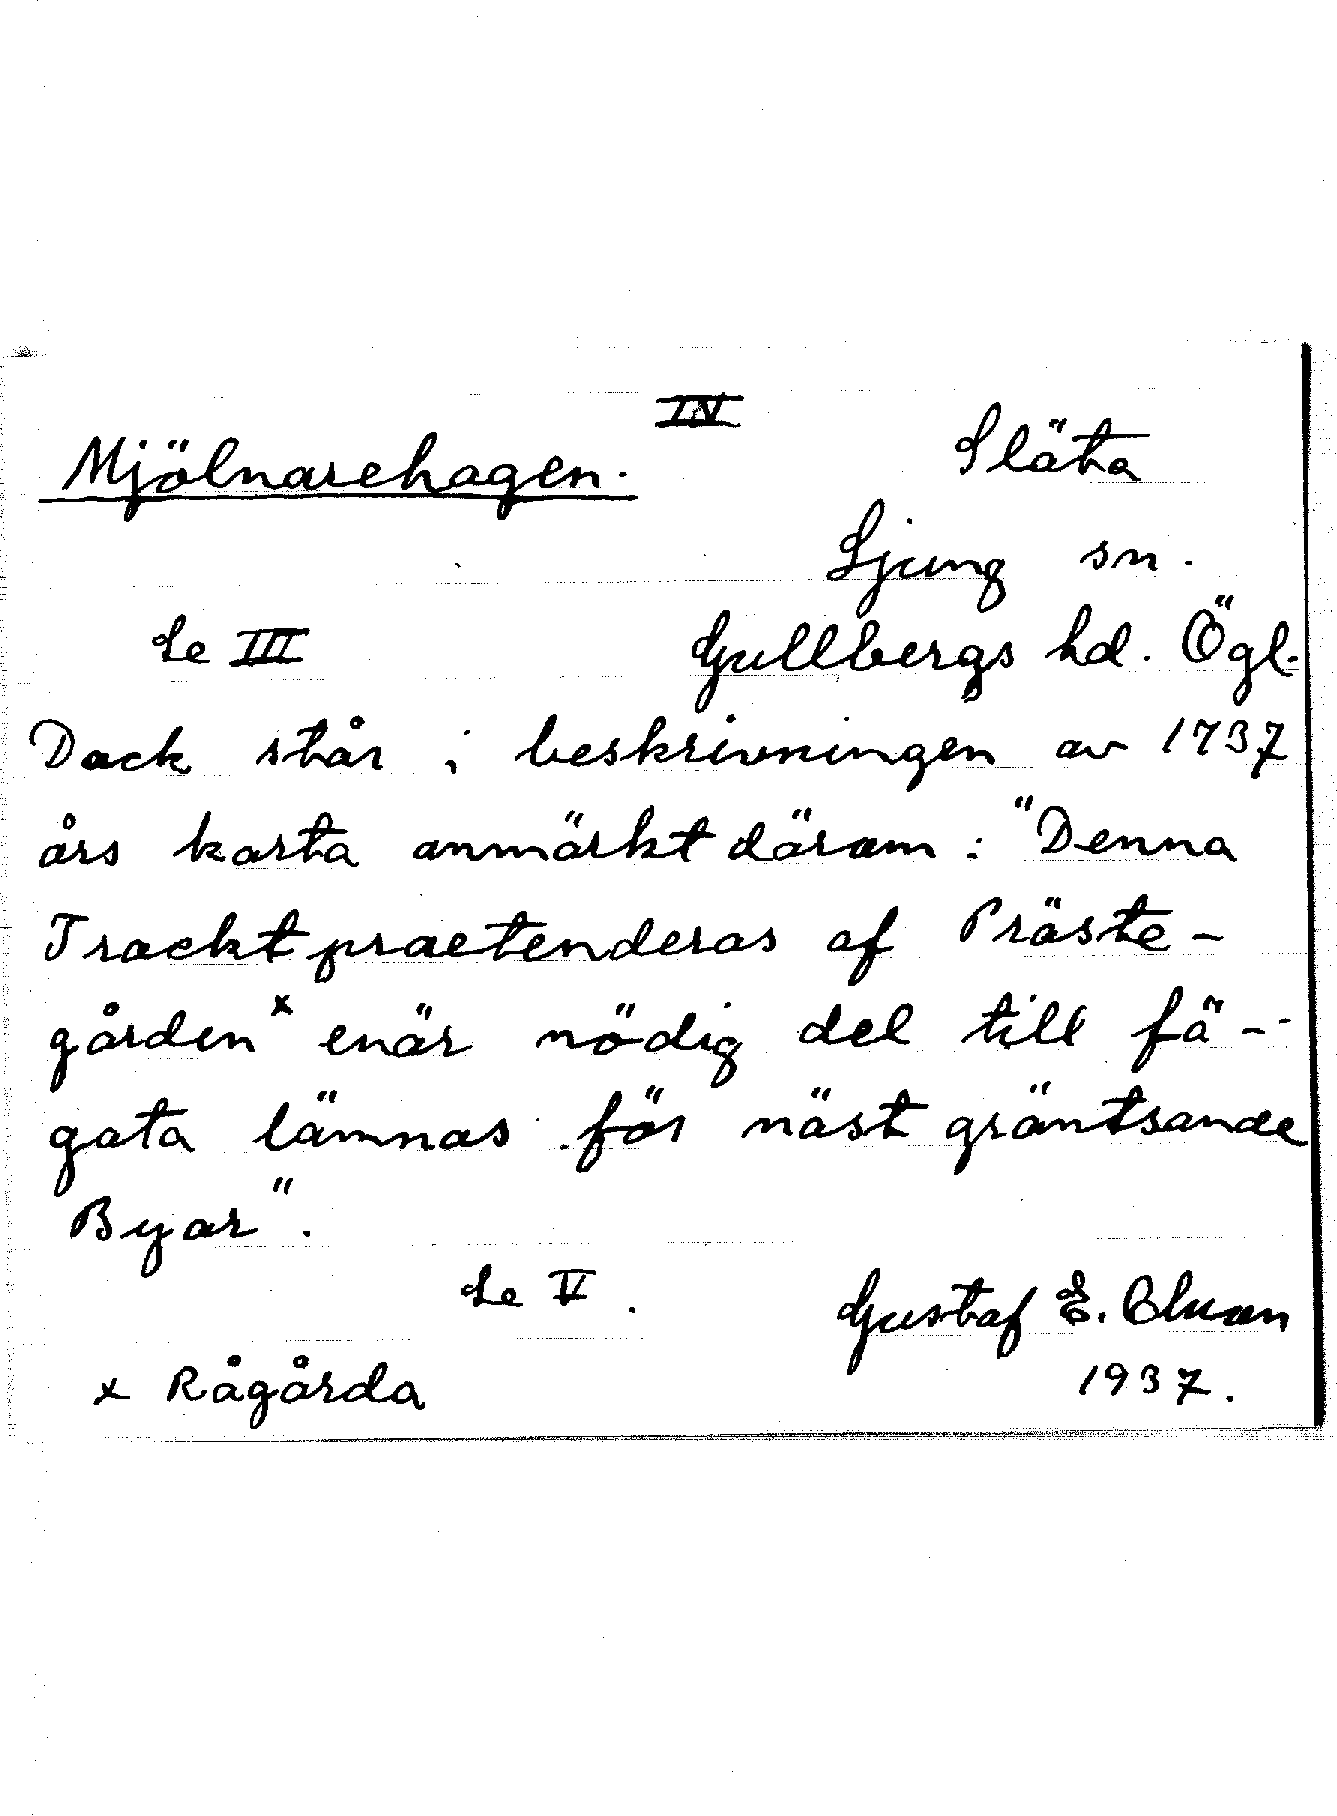 IV
Mjölnarehagen.
Släta
Ljung sn.
Se III
Gullbergs hd. Ögl.
Dock står i beskrivningen av 1737
års karta anmärkt därom: "Denna
Trackt praetenderas af Präste-
gården x enär nödig del till fä-
gata lämnas för näst gräntsande
Byar".
Se V.
Gustaf E.
1937.
x Rågårda